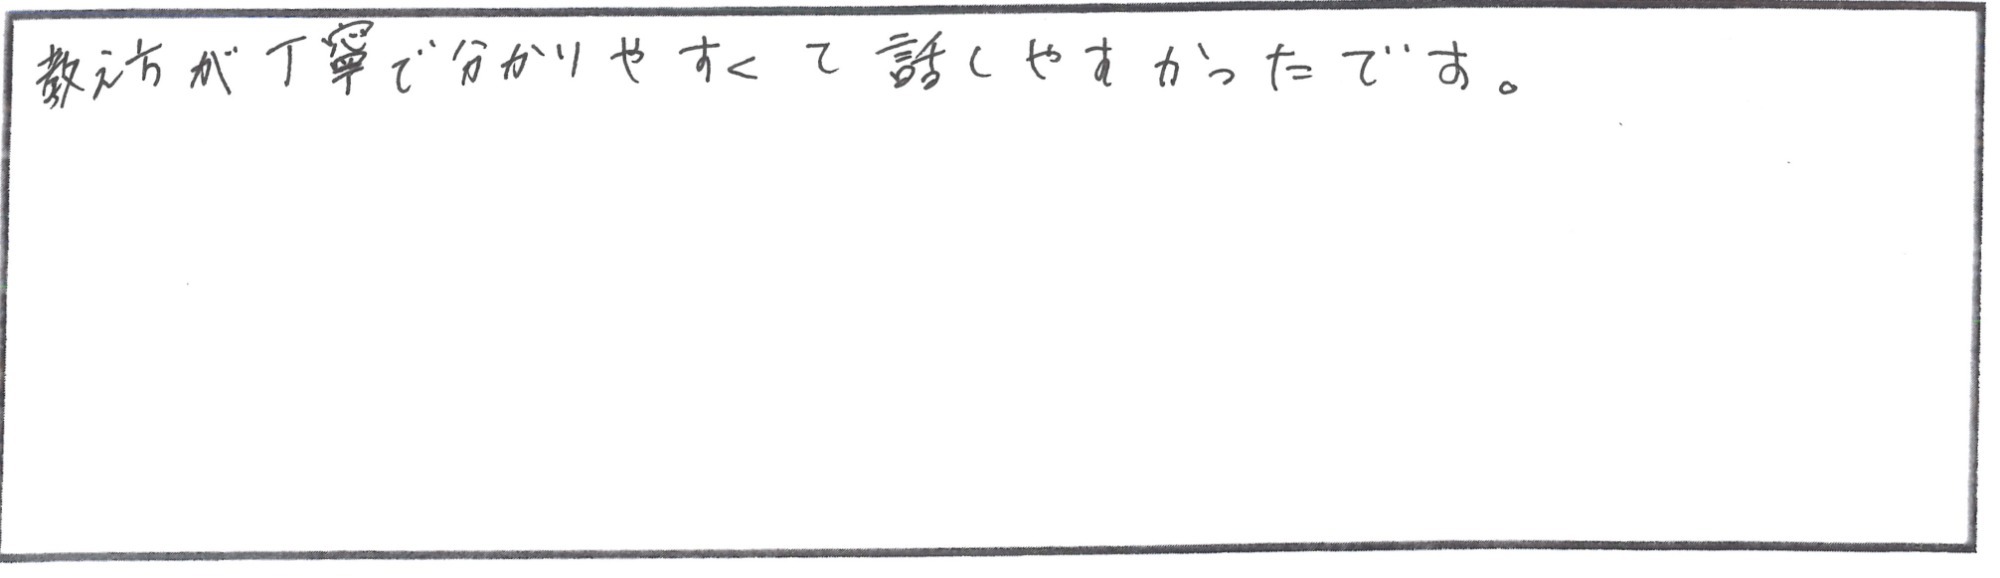 教え方が丁寧で分かりやすくて話しやすかったです。